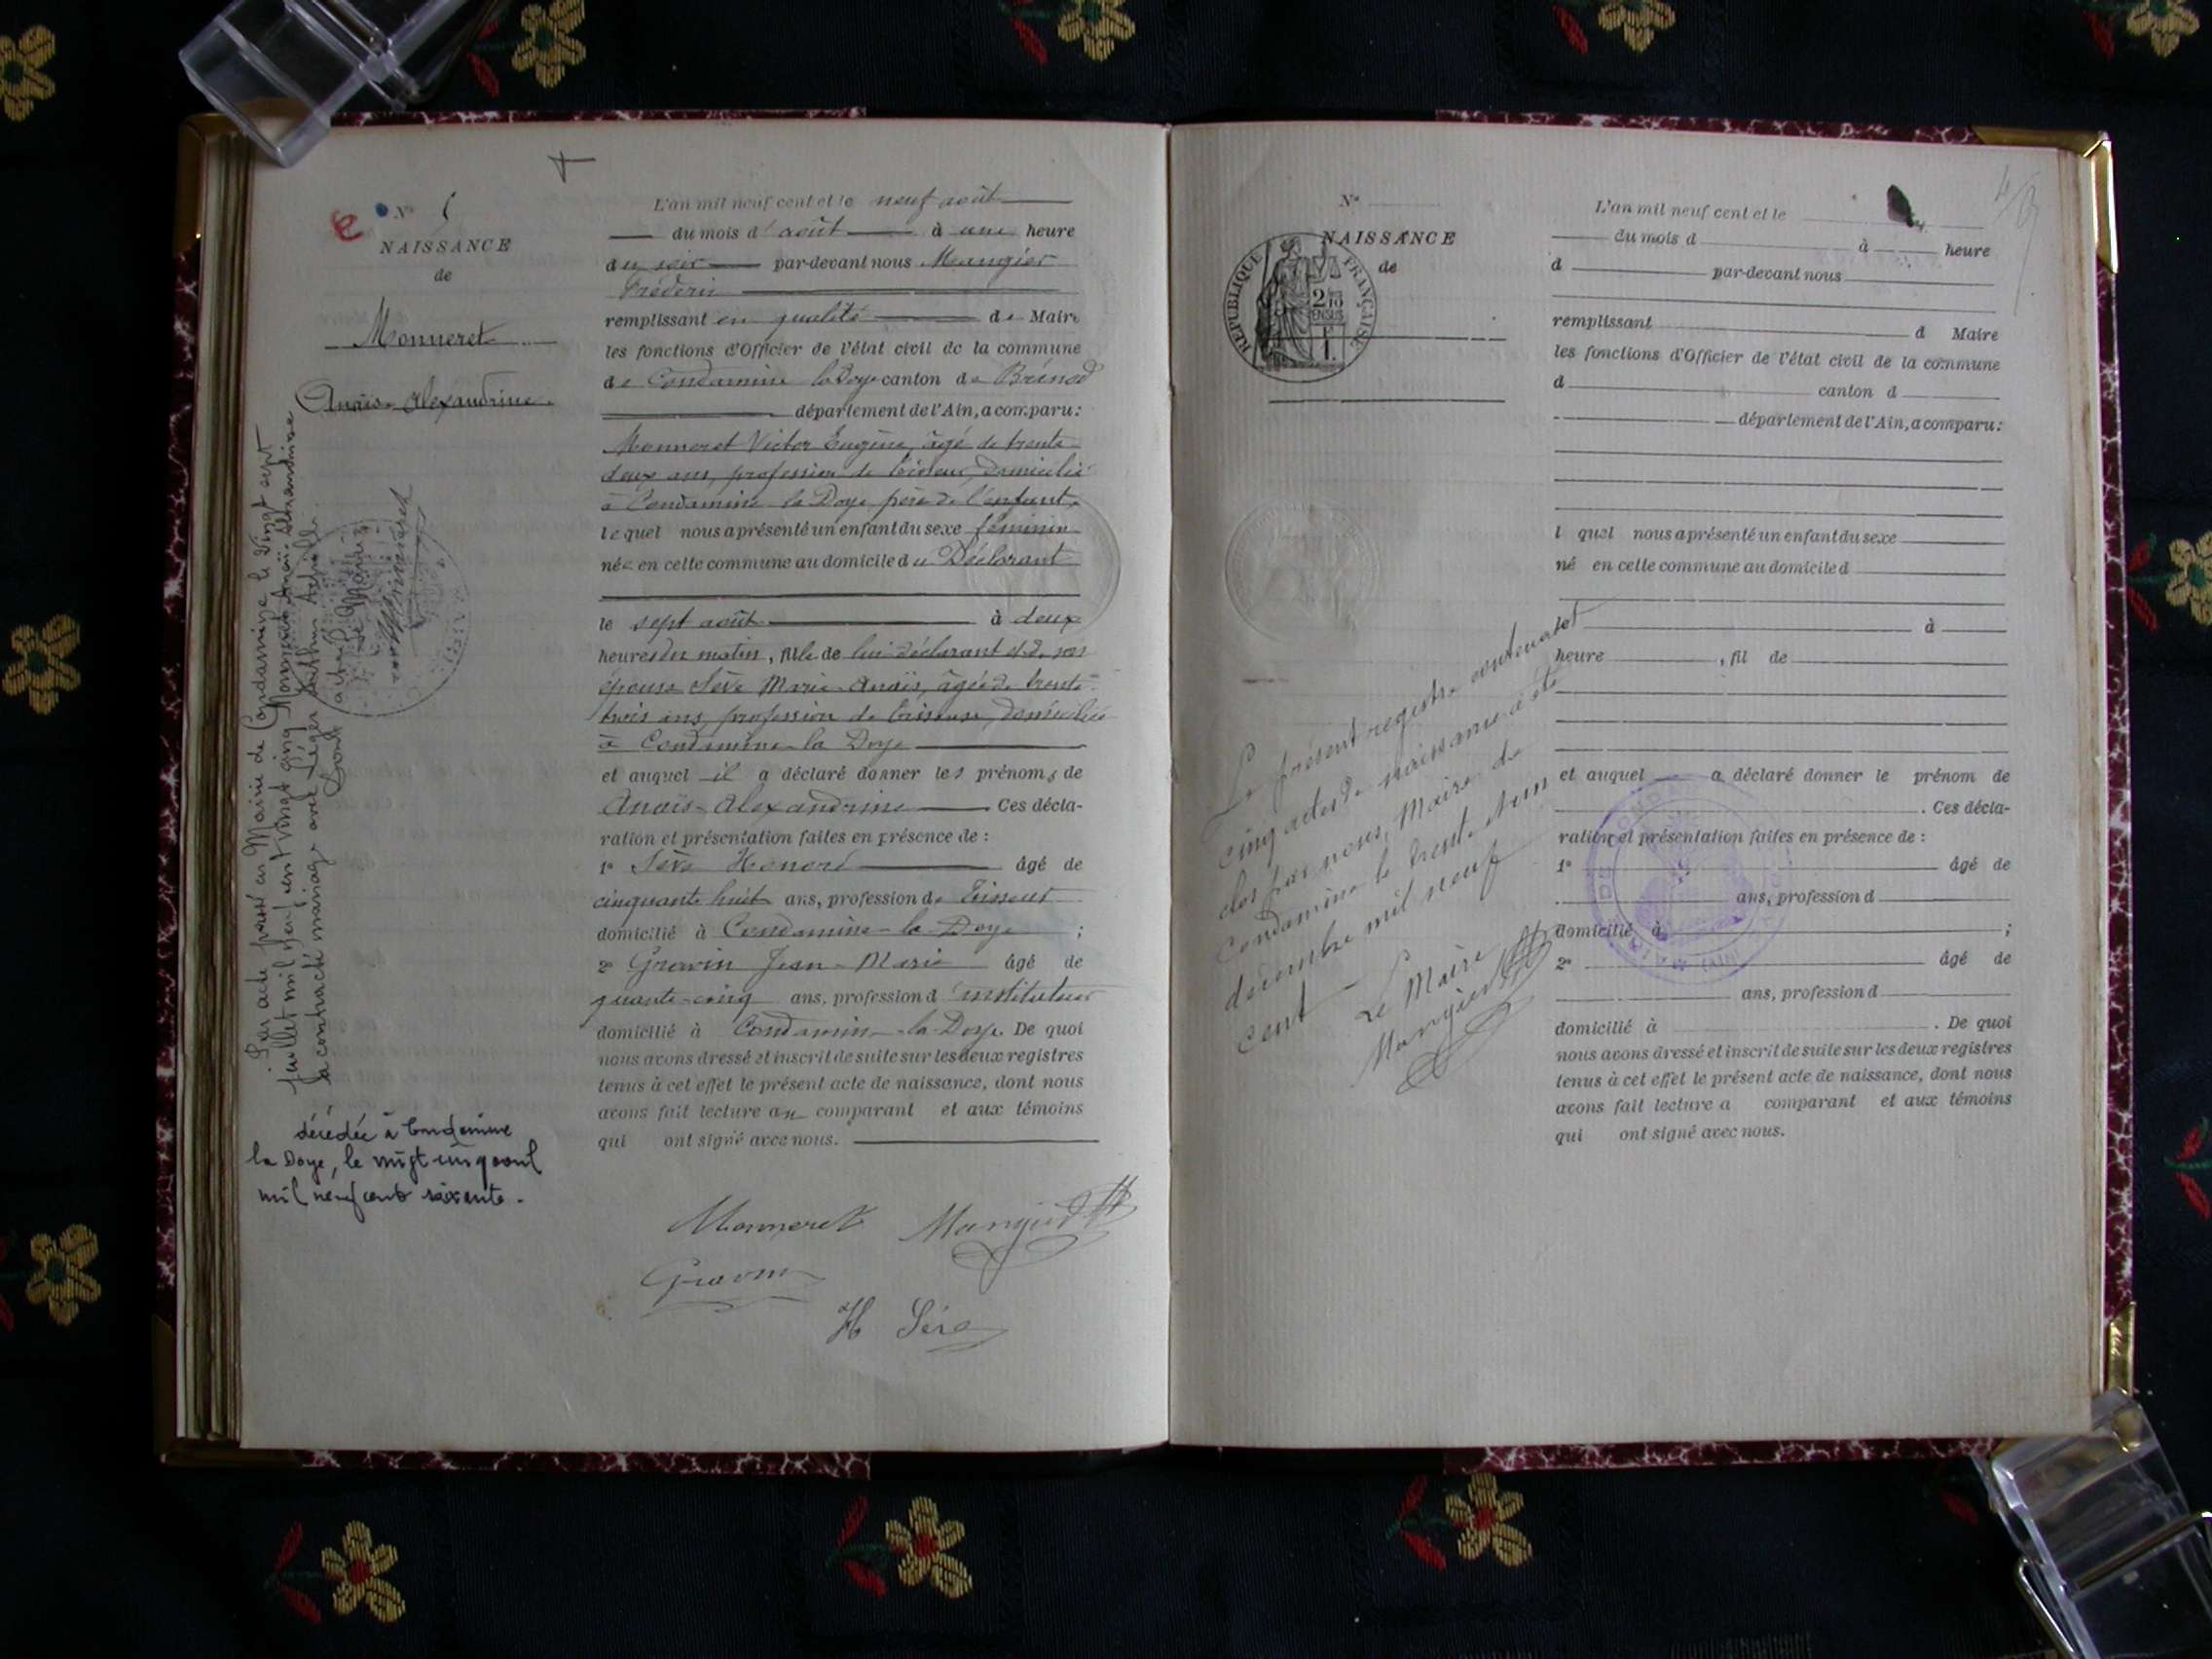 Nº 5
NAISSANCE
de
Monneret
Anaïs-Alexandrine
Par acte passé en Mairie de Condamine le vingt sept
juillet mil neuf cent vingt cinq Monneret Anaïs-Alexandrine
a contracté mariage avec Léger
Le Maire
décédée à Condamine
la Doye, le vingt cinq août
mil neuf cent soixante.
L'an mil neuf cent et le neuf août
du mois d'août à une heure
du soir par-devant nous Maugier
Fréderic
remplissant en qualité de Maire
les fonctions d'Officier de l'état civil de la commune
de Condamine la Doye canton de Brénod
département de l'Ain, a comparu:
Monneret Victor Eugène, âgé de trente
deux ans, profession de tisseur, domicilié
à Condamine la Doye père de l'enfant,
lequel nous a présenté un enfant du sexe féminin
née en cette commune au domicile du Déclarant
le sept août à deux
heures du matin, fille de lui déclarant et de son
épouse Sève Marie-Anaïs, âgée de trente-
trois ans, profession de tisseuse, domiciliée
à Condamine-la Doye
et auquel il a déclaré donner les prénoms de
Anaïs-Alexandrine. Ces décla-
ration et présentation faites en présence de :
1º Sève Honoré âgé de
cinquante huit ans, profession de Tisseur
domicilié à Condamine-la-Doye ;
2º Gravin Jean-Marie âgé de
quante-cinq ans, profession d'instituteur
domicilié à Condamine-la-Doye. De quoi
nous avons dressé et inscrit de suite sur les deux registres
tenus à cet effet le présent acte de naissance, dont nous
avons fait lecture au comparant et aux témoins
qui ont signé avec nous.
Monneret Maugier
Gravin
H Sève
Nº
NAISSANCE
de
RÉPUBLIQUE FRANÇAISE
Le présent registre contenant
cinq actes de naissance a été
clos par nous, Maire de
Condamine le trente et un
décembre mil neuf
cent
Le Maire
Maugier
L'an mil neuf cent et le
du mois d à heure
d par-devant nous
remplissant d Maire
les fonctions d'Officier de l'état civil de la commune
d canton d
département de l'Ain, a comparu:
l quel nous a présenté un enfant du sexe
né en cette commune au domicile d
le à
heure , fil de
et auquel a déclaré donner le prénom de
. Ces décla-
ration et présentation faites en présence de :
1º âgé de
ans, profession d
domicilié à ;
2º âgé de
ans, profession d
domicilié à . De quoi
nous avons dressé et inscrit de suite sur les deux registres
tenus à cet effet le présent acte de naissance, dont nous
avons fait lecture a comparant et aux témoins
qui ont signé avec nous.